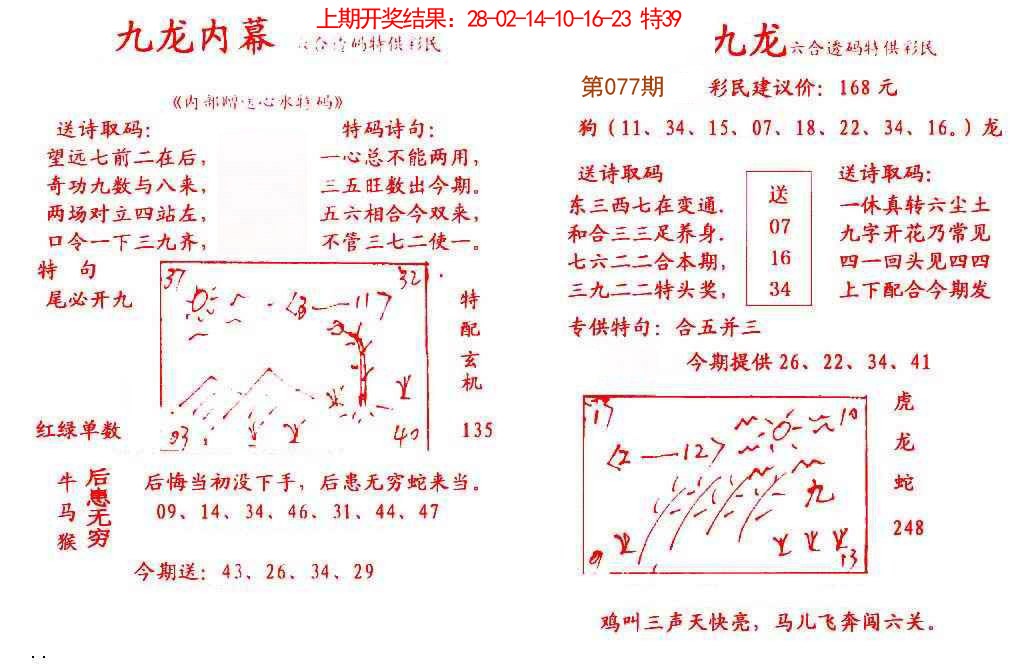 上期开奖结果：28-02-14-10-16-23 特39
九龙内幕
六合透码特供彩民
《内部赠送心水特码》
送诗取码：
望远七前二在后，
奇功九数与八来，
两场对立四站左，
口令一下三九齐，
特码诗句：
一心总不能两用，
三五旺数出今期。
五六相合今双来，
不管三七二使一。
特 句
尾必开九
红绿单数
37
32
(3—11)
03
40
特
配
玄
机
135
牛
马
猴
后患无穷
后悔当初没下手，后患无穷蛇来当。
09、14、34、46、31、44、47
今期送：43、26、34、29
九龙
六合透码特供彩民
第077期
彩民建议价：168 元
狗（11、34、15、07、18、22、34、16。）龙
送诗取码
东三西七在变通．
和合三三足养身．
七六二二合本期，
三九二二特头奖，
送
07
16
34
送诗取码：
一休真转六尘土
九字开花乃常见
四一回头见四四
上下配合今期发
专供特句：合五并三
今期提供 26、22、34、41
13
19
(2—12)
九
9
13
虎
龙
蛇
248
鸡叫三声天快亮，马儿飞奔闯六关。